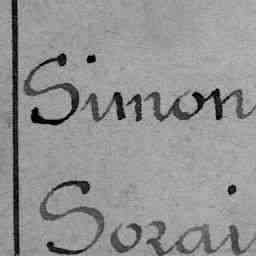 Simon
Sorai